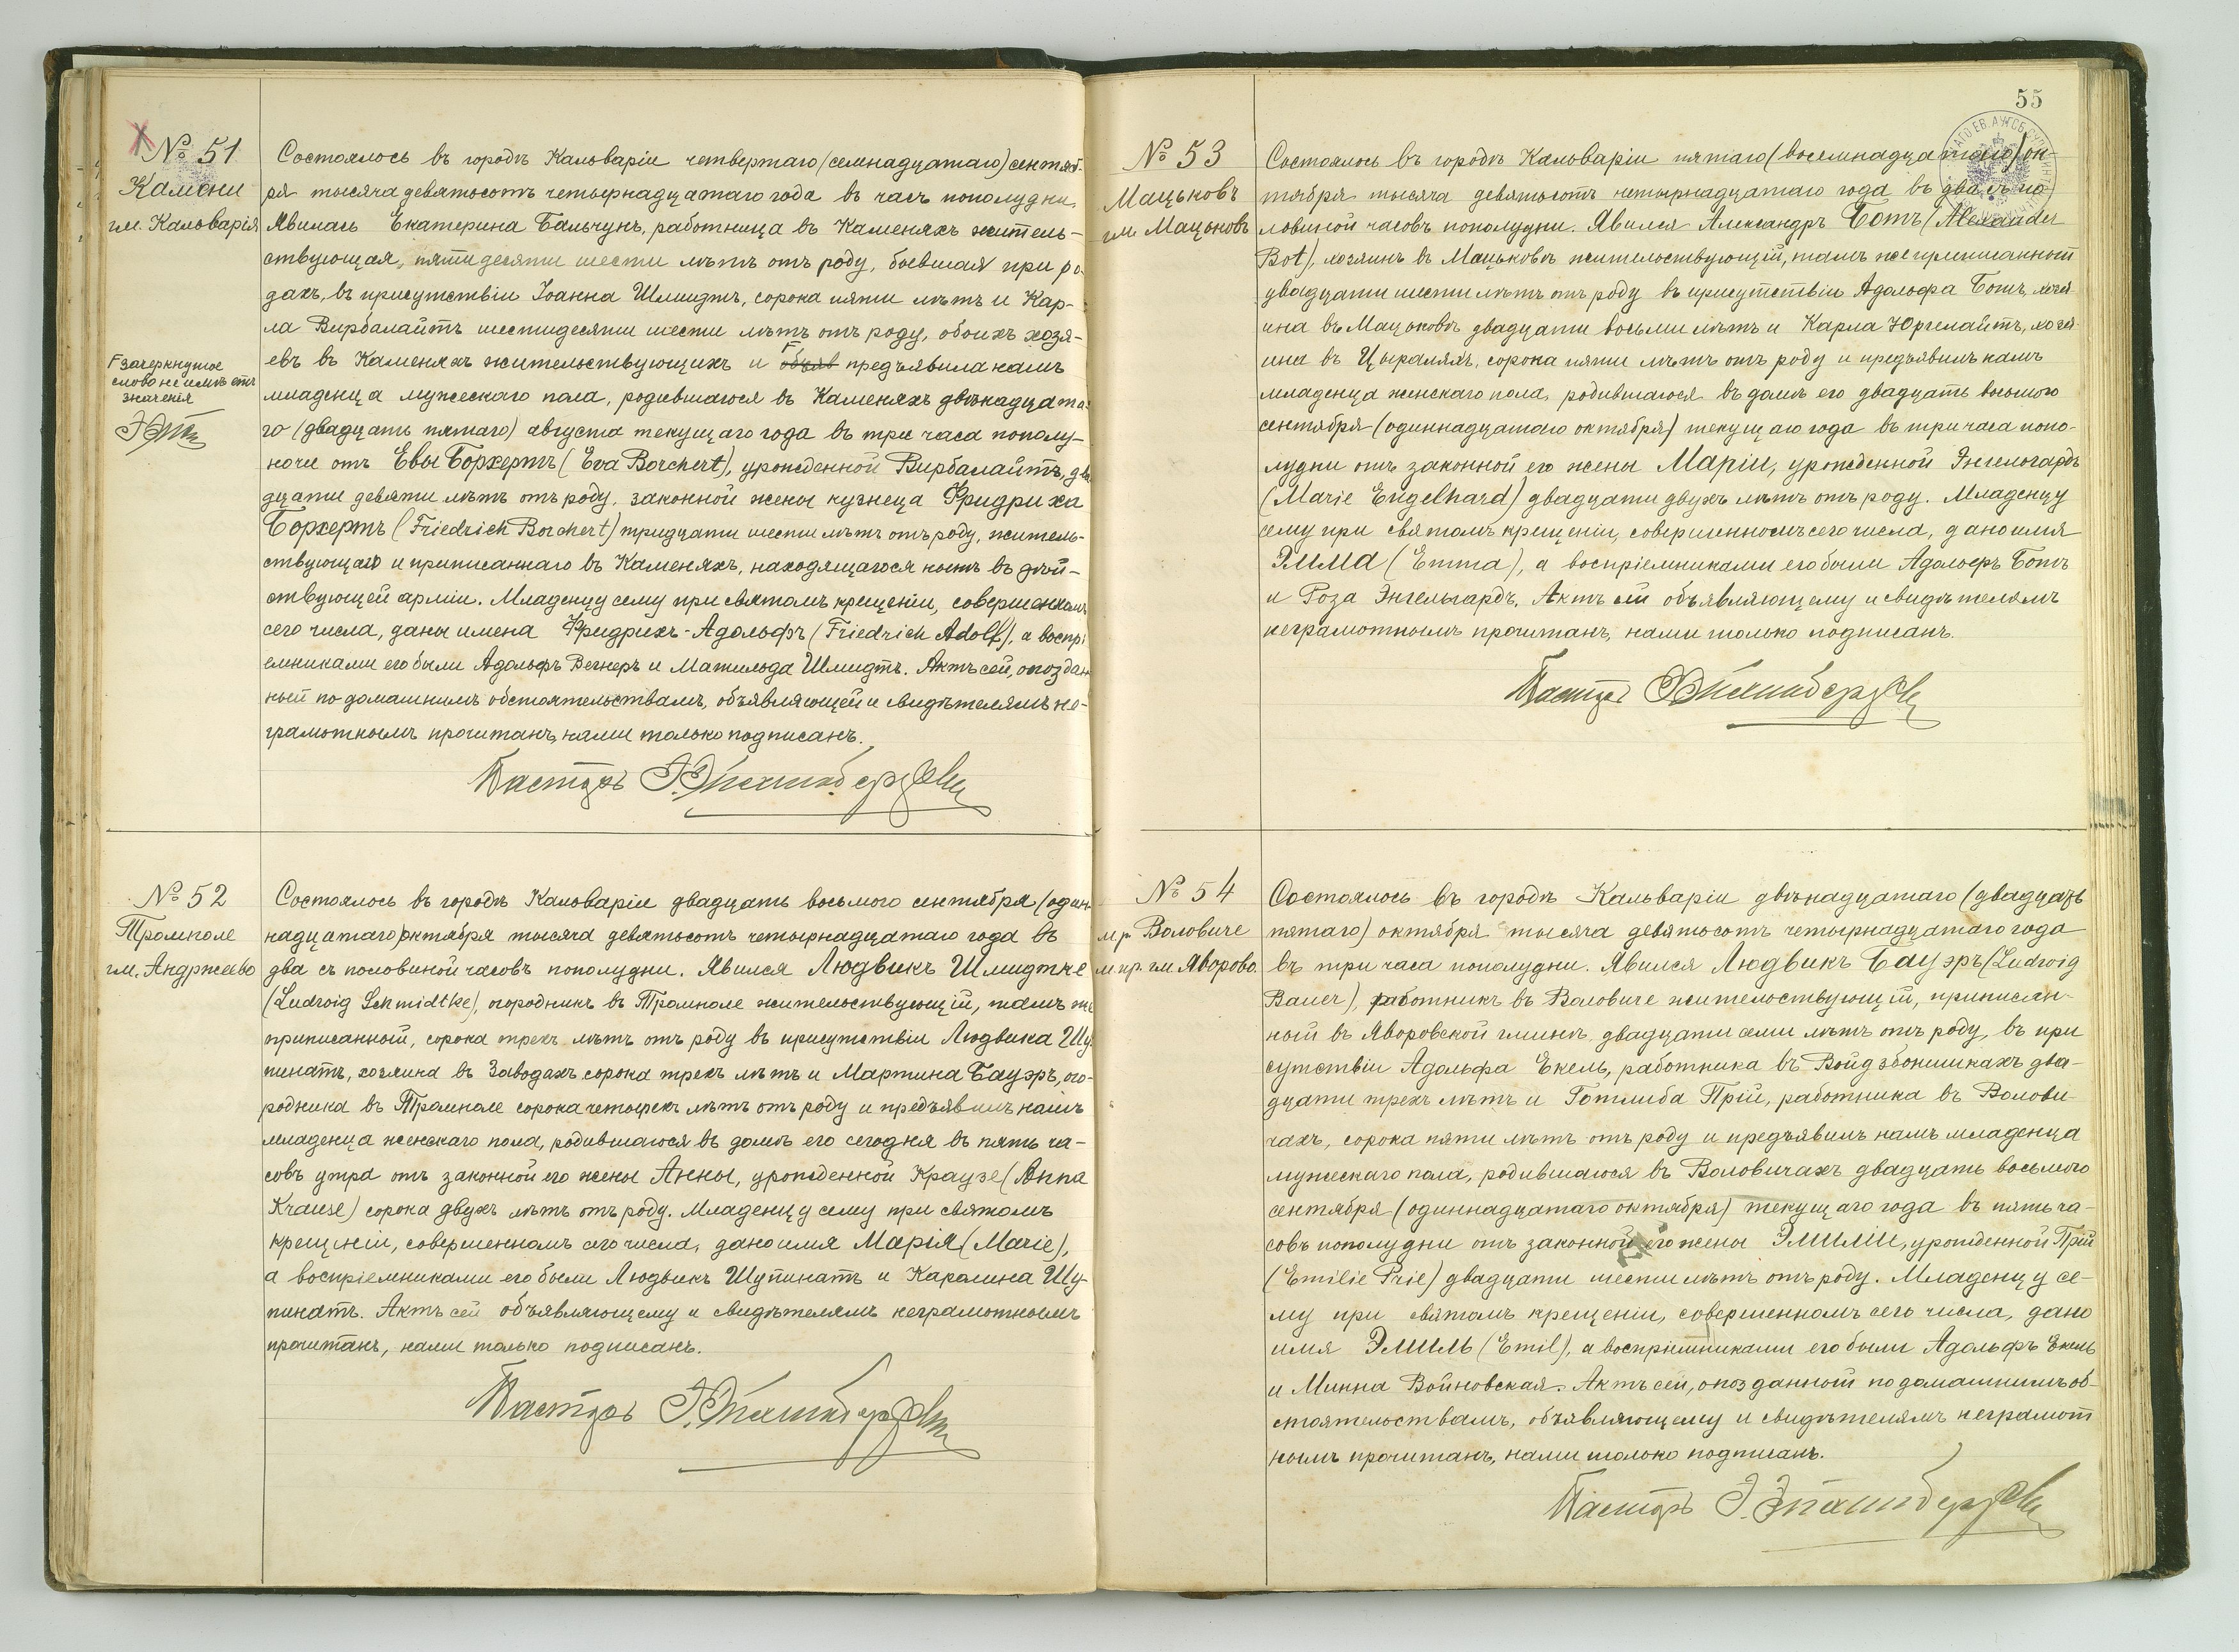 № 51
Камени
гм. Кальварія
Состоялось въ городѣ Кальваріи четвертаго (семнадцатаго) сентяб-
ря тысяча девятьсотъ четырнадцатаго года въ часъ пополудни.
Явилась Екатерина Бальчунъ, работница въ Каменяхъ житель-
ствующая, пятидесяти шести лѣтъ отъ роду, боевшая при ро-
дахъ, въ присутствіи Іоанна Шмидтъ, сорока пяти лѣтъ и Кар-
ла Вирбалайтъ шестидесяти шести лѣтъ отъ роду, обоихъ хозя-
евъ въ Каменяхъ жительствующихъ и объяв предъявила намъ
младенца мужескаго пола, родившагося въ Каменяхъ двѣнадцата-
го (двадцать пятаго) августа текущаго года въ три часа пополу-
ночи отъ Евы Борхертъ (Eva Borchert), урожденной Вирбалайтъ, два
дцати девяти лѣтъ отъ роду, законной жены кузнеца Фридриха
Борхертъ (Friedrich Borchert) тридцати шести лѣтъ отъ роду, житель-
ствующаго и приписаннаго въ Каменяхъ, находящагося нынѣ въ дѣй-
ствующей арміи. Младенцу сему при святомъ крещеніи, совершенномъ
сего числа, даны имена Фридрихъ-Адольфъ (Friedrich Adolf), а воспрі
емниками его были Адольфъ Вегнеръ и Матильда Шмидтъ. Актъ сей, опоздан
ный по домашнимъ обстоятельствамъ, объявляющей и свидѣтелямъ не-
грамотнымъ прочитанъ, нами только подписанъ.
Пасторъ
зачеркнутое
слово не имѣетъ
значенія
№ 52
Тромполе
гм. Андржеево
Состоялось въ городѣ Кальваріи двадцать восьмого сентября (один-
надцатаго) октября тысяча девятьсотъ четырнадцатаго года въ
два съ половиной часовъ пополудни. Явился Людвикъ Шмидтке
(Ludwig Schmidtke), огородникъ въ Тромполе жительствующій, тамъ же
приписанный, сорока трехъ лѣтъ отъ роду въ присутствіи Людвика Шу
пинатъ, хозяина въ Заводахъ сорока трехъ лѣтъ и Мартина Бауэръ, ого-
родника въ Тромполе сорока четырехъ лѣтъ отъ роду и предъявилъ намъ
младенца женскаго пола, родившагося въ домѣ его сегодня въ пять ча-
совъ утра отъ законной его жены Анны, урожденной Краузе (Anna
Krause) сорока двухъ лѣтъ отъ роду. Младенцу сему при святомъ
крещеніи, совершенномъ сего числа, дано имя Марія (Marie),
а воспріемниками его были Людвикъ Шупинатъ и Каролина Шу-
пинатъ. Актъ сей объявляющему и свидѣтелямъ неграмотнымъ
прочитанъ, нами только подписанъ.
Пасторъ
55
№ 53
Мацьковъ
гм. Мацьковъ
Состоялось въ городѣ Кальваріи пятаго (восемнадцатаго) ок-
тября тысяча девятьсотъ четырнадцатаго года въ два съ по
ловиной часовъ пополудни. Явился Александръ Ботъ (Alexander
Bot), хозяинъ въ Мацьковѣ жительствующій, тамъ же приписанный
двадцати шести лѣтъ отъ роду въ присутствіи Адольфа Ботъ, хозя-
ина въ Мацьковѣ двадцати восьми лѣтъ и Карла Юргелайтъ, хозя-
ина въ Цыраляхъ, сорока пяти лѣтъ отъ роду и предъявилъ намъ
младенца женскаго пола, родившагося въ домѣ его двадцать восьмого
сентября (одиннадцатаго октября) текущаго года въ три часа попо-
лудни отъ законной его жены Маріи, урожденной Энгельгардъ
(Marie Engelhard) двадцати двухъ лѣтъ отъ роду. Младенцу
сему при святомъ крещеніи, совершенномъ сего числа, дано имя
Эмма (Emma), а воспріемниками его были Адольфъ Ботъ
и Роза Энгельгардъ. Актъ сей объявляющему и свидѣтелямъ
неграмотнымъ прочитанъ, нами только подписанъ.
Пасторъ
№ 54
Воловиче
гм. Яворово.
Состоялось въ городѣ Кальваріи двѣнадцатаго (двадцать
пятаго) октября тысяча девятьсотъ четырнадцатаго года
въ три часа пополудни. Явился Людвикъ Бауэръ (Ludwig
Bauer), работникъ въ Воловиче жительствующій, приписан-
ный въ Яворовской гминѣ, двадцати семи лѣтъ отъ роду, въ при
сутствіи Адольфа Екель, работника въ Войдзбонишкахъ два-
дцати трехъ лѣтъ и Готлиба Прій, работника въ Волови-
чахъ, сорока пяти лѣтъ отъ роду и предъявилъ намъ младенца
мужескаго пола, родившагося въ Воловичахъ двадцать восьмого
сентября (одиннадцатаго октября) текущаго года въ пять ча-
совъ пополудни отъ законной его жены Эмиліи, урожденной Прій
(Emilie Prie) двадцати шести лѣтъ отъ роду. Младенцу се-
му при святомъ крещеніи, совершенномъ сего числа, дано
имя Эмиль (Emil), а воспріемниками его были Адольфъ Екель
и Минна Войновская. Актъ сей, опозданный по домашнимъ об-
стоятельствамъ, объявляющему и свидѣтелямъ неграмот
нымъ прочитанъ, нами только подписанъ.
Пасторъ